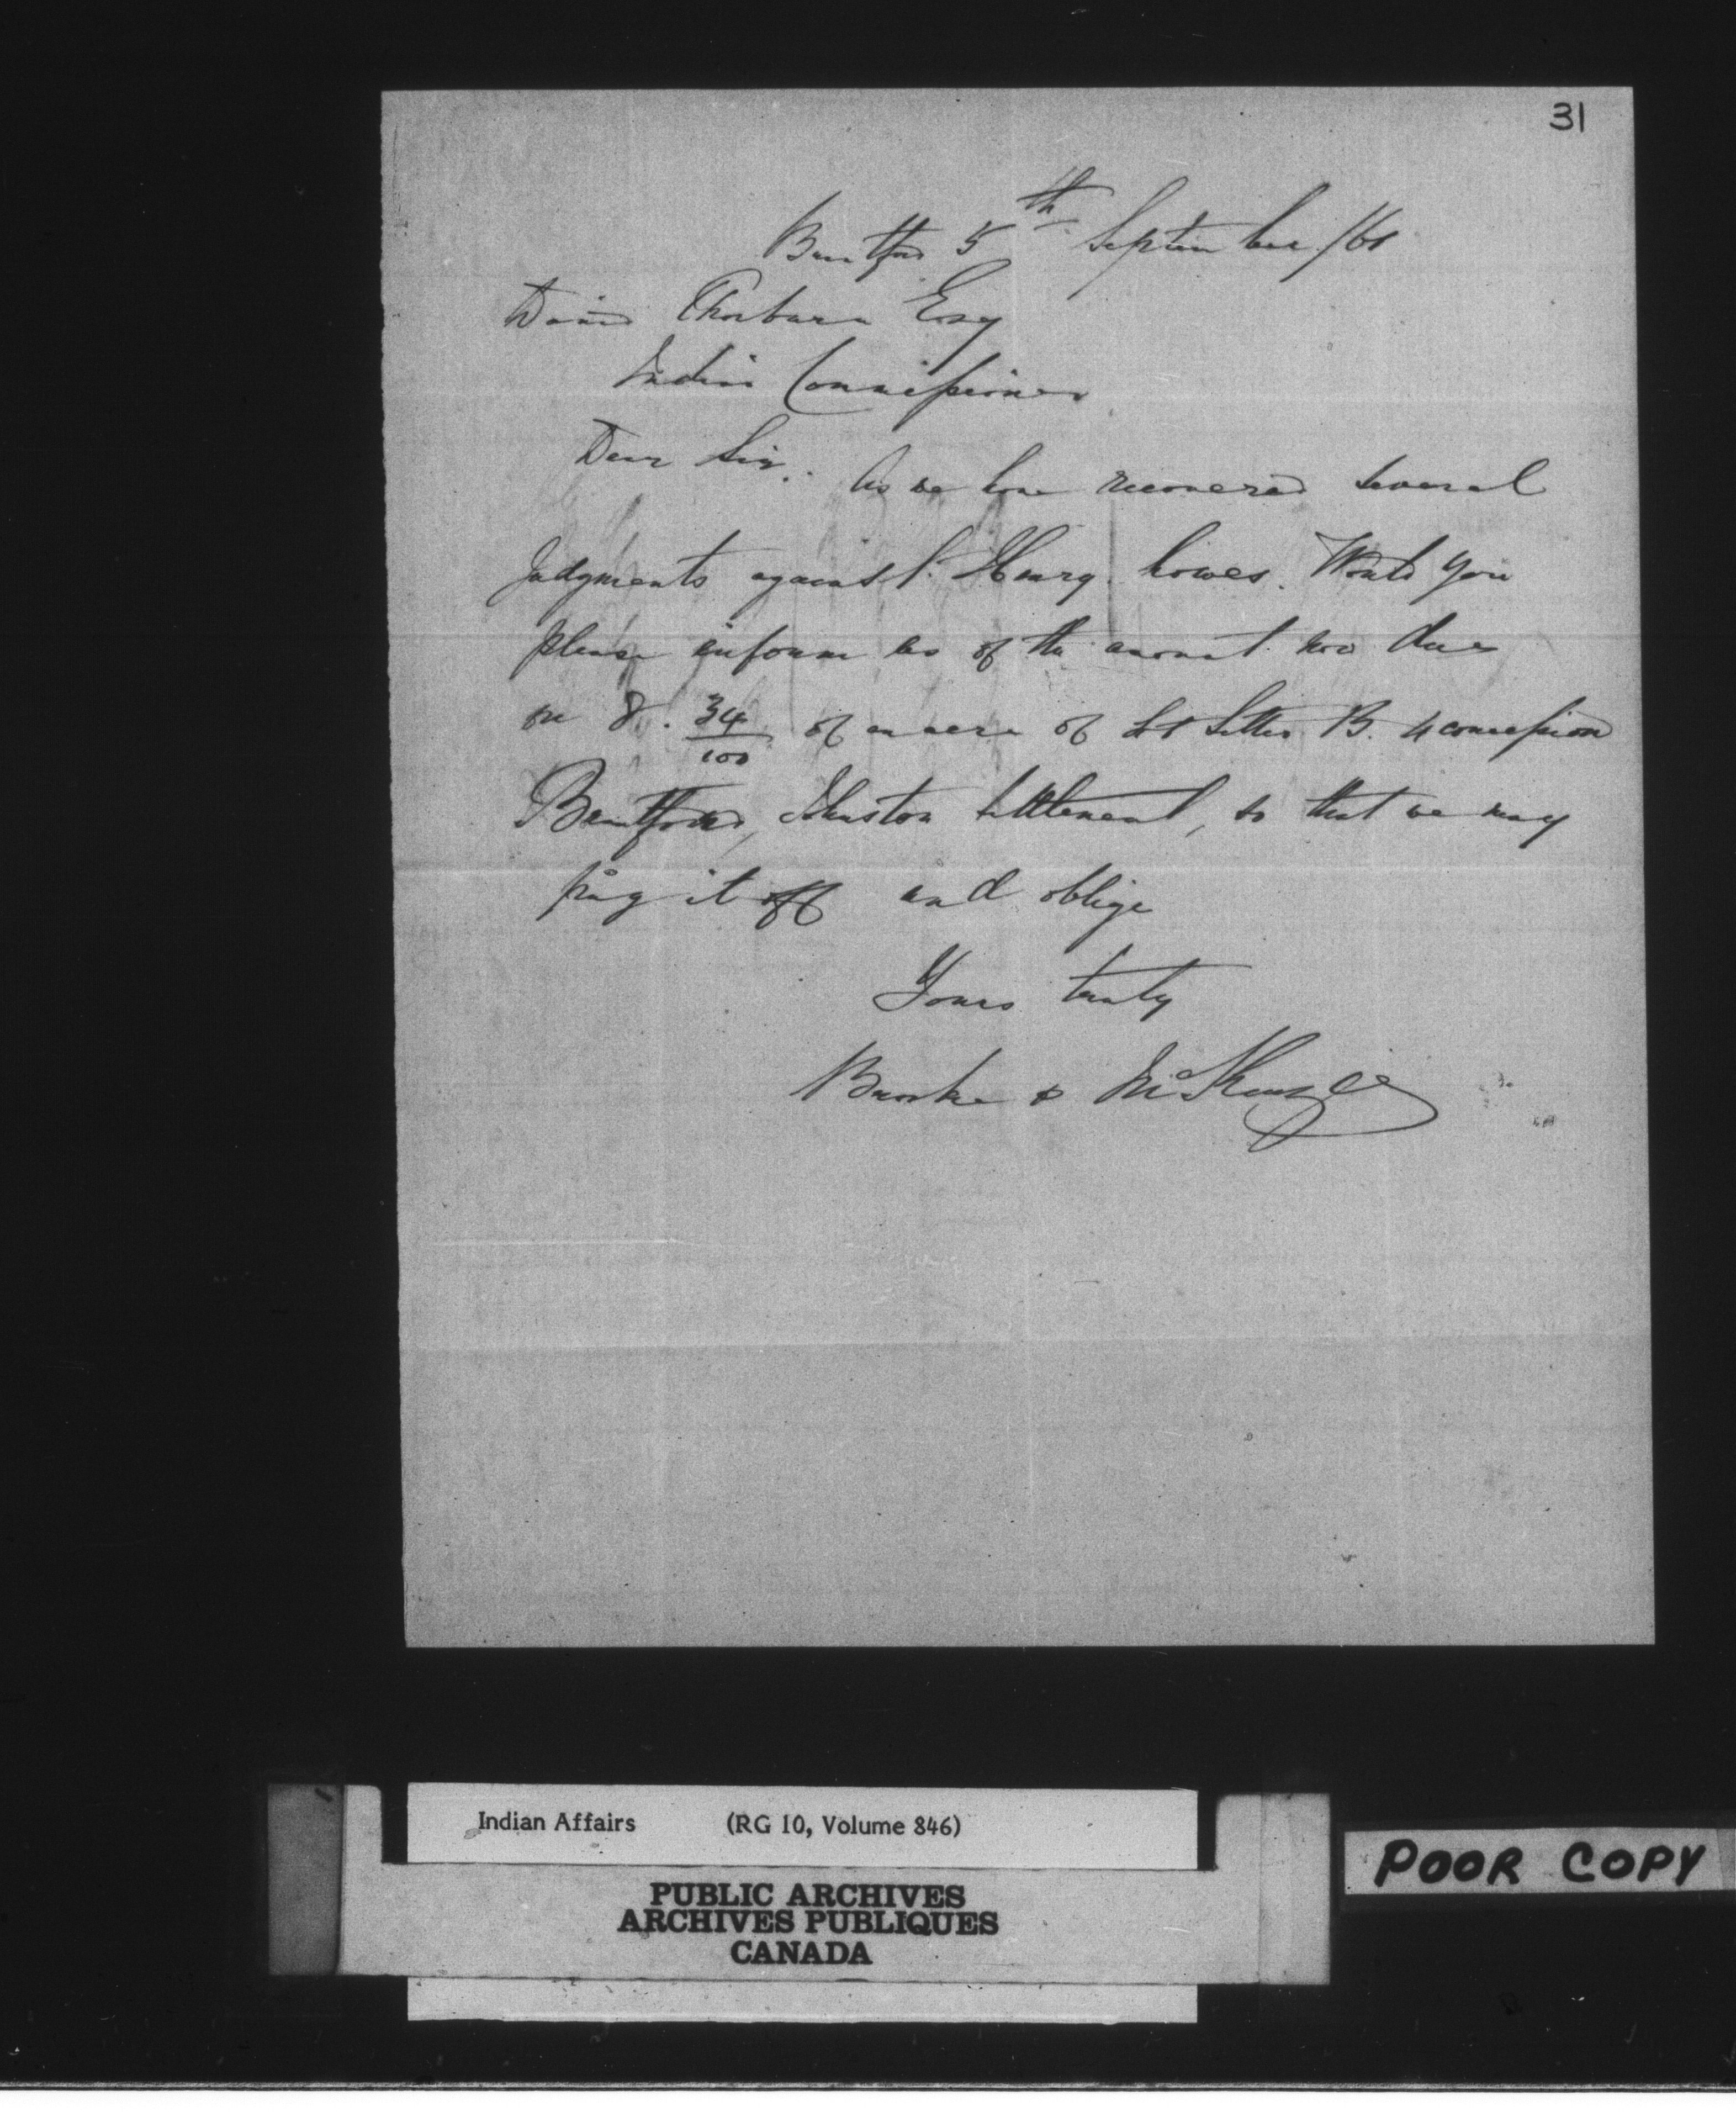 31
Brantford 5th September /61
David Thorburn Esq
Indian Commissioner
Dear Sir. As we have recovered several
Judgments against Henry Howes. Would you
please inform us of the amount now due
on 8. 34/100 of an acre of Lot Letter B. 4 concession
Brantford, Johnston Settlement, so that we may
pay it off and oblige
Yours truly
& McKenzie
Indian Affairs (RG 10, Volume 846)
PUBLIC ARCHIVES
ARCHIVES PUBLIQUES
CANADA
POOR COPY